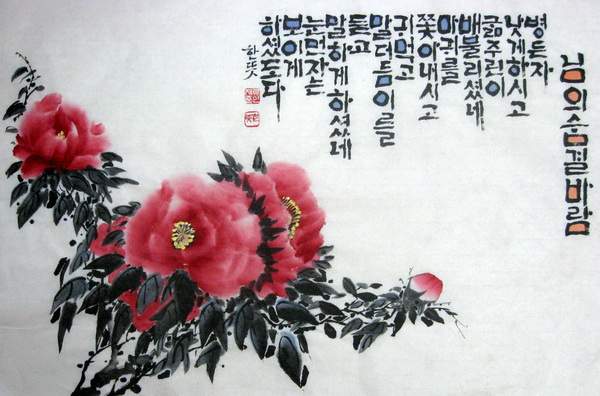 님의숨결바람
병든자
낫게하시고
굶주린이
배불리셨네
마귀를
쫓아내시고
귀먹고
말더듬이를
듣고
말하게하셨네
눈먼자는
보이게
하셨도다
한뜻